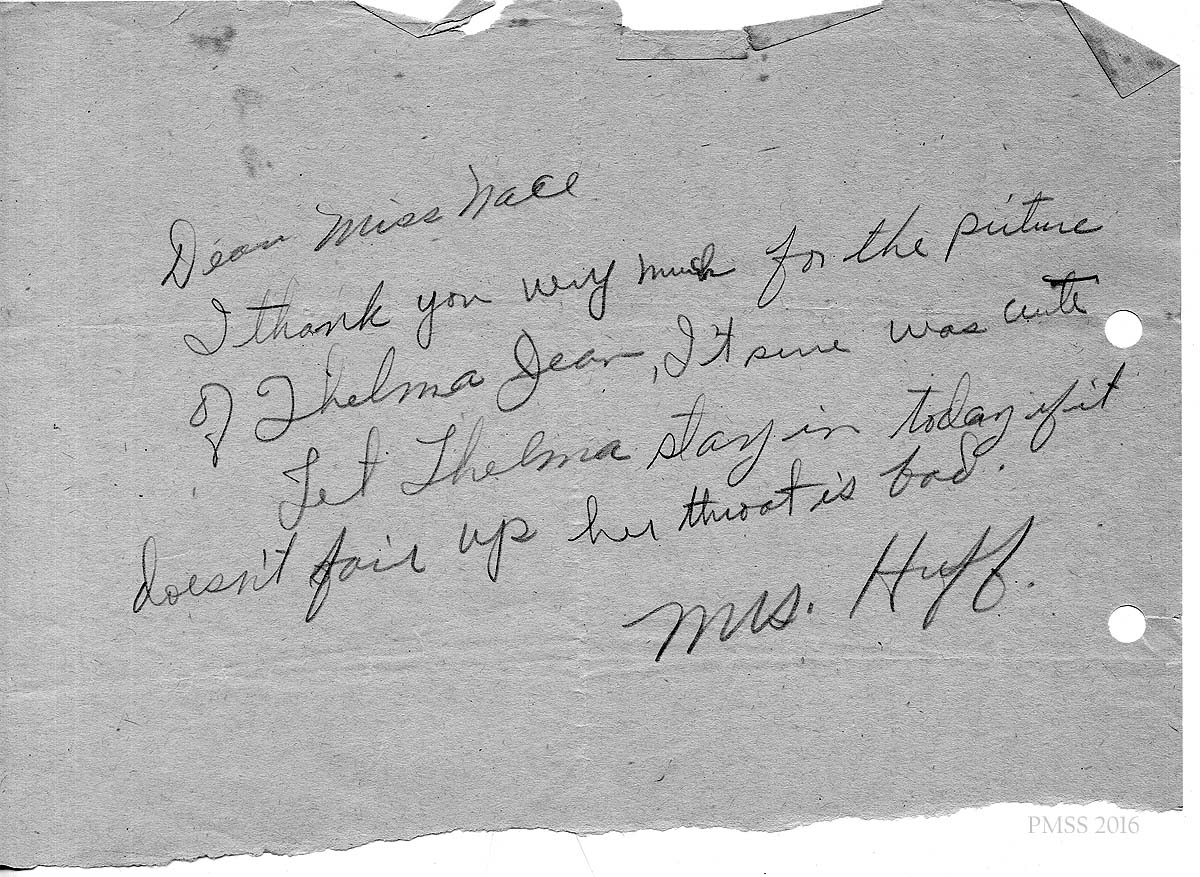 Dear Miss Nace
I thank you very much for the picture
of Thelma Jean, It sure was cute
Let Thelma stay in today if it
doesn't fair up her throat is bad.
Mrs. Huff.
PMSS 2016